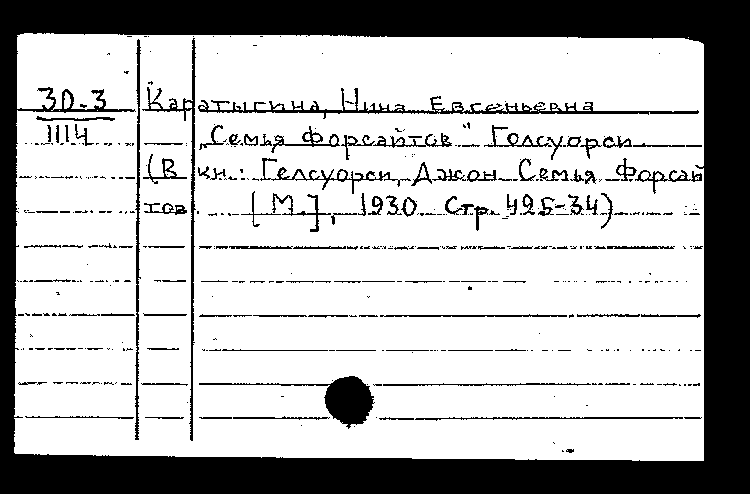 30-3
1114
Каратыгина, Нина Евгеньевна
„Семья Форсайтов" Голсуорси.
(В кн.: Голсуорси, Джон Семья Форсай
тов. [М.], 1930 Стр. 495-34)